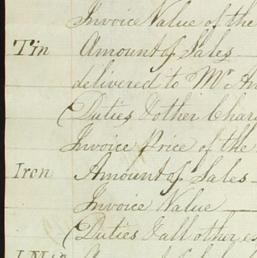 Invoice Value of the
Tin Amount of Sales
delivered to Mr
(Duties & other Char
Invoice Price of the
Iron Amount of Sales
Invoice Value
(Duties & all other